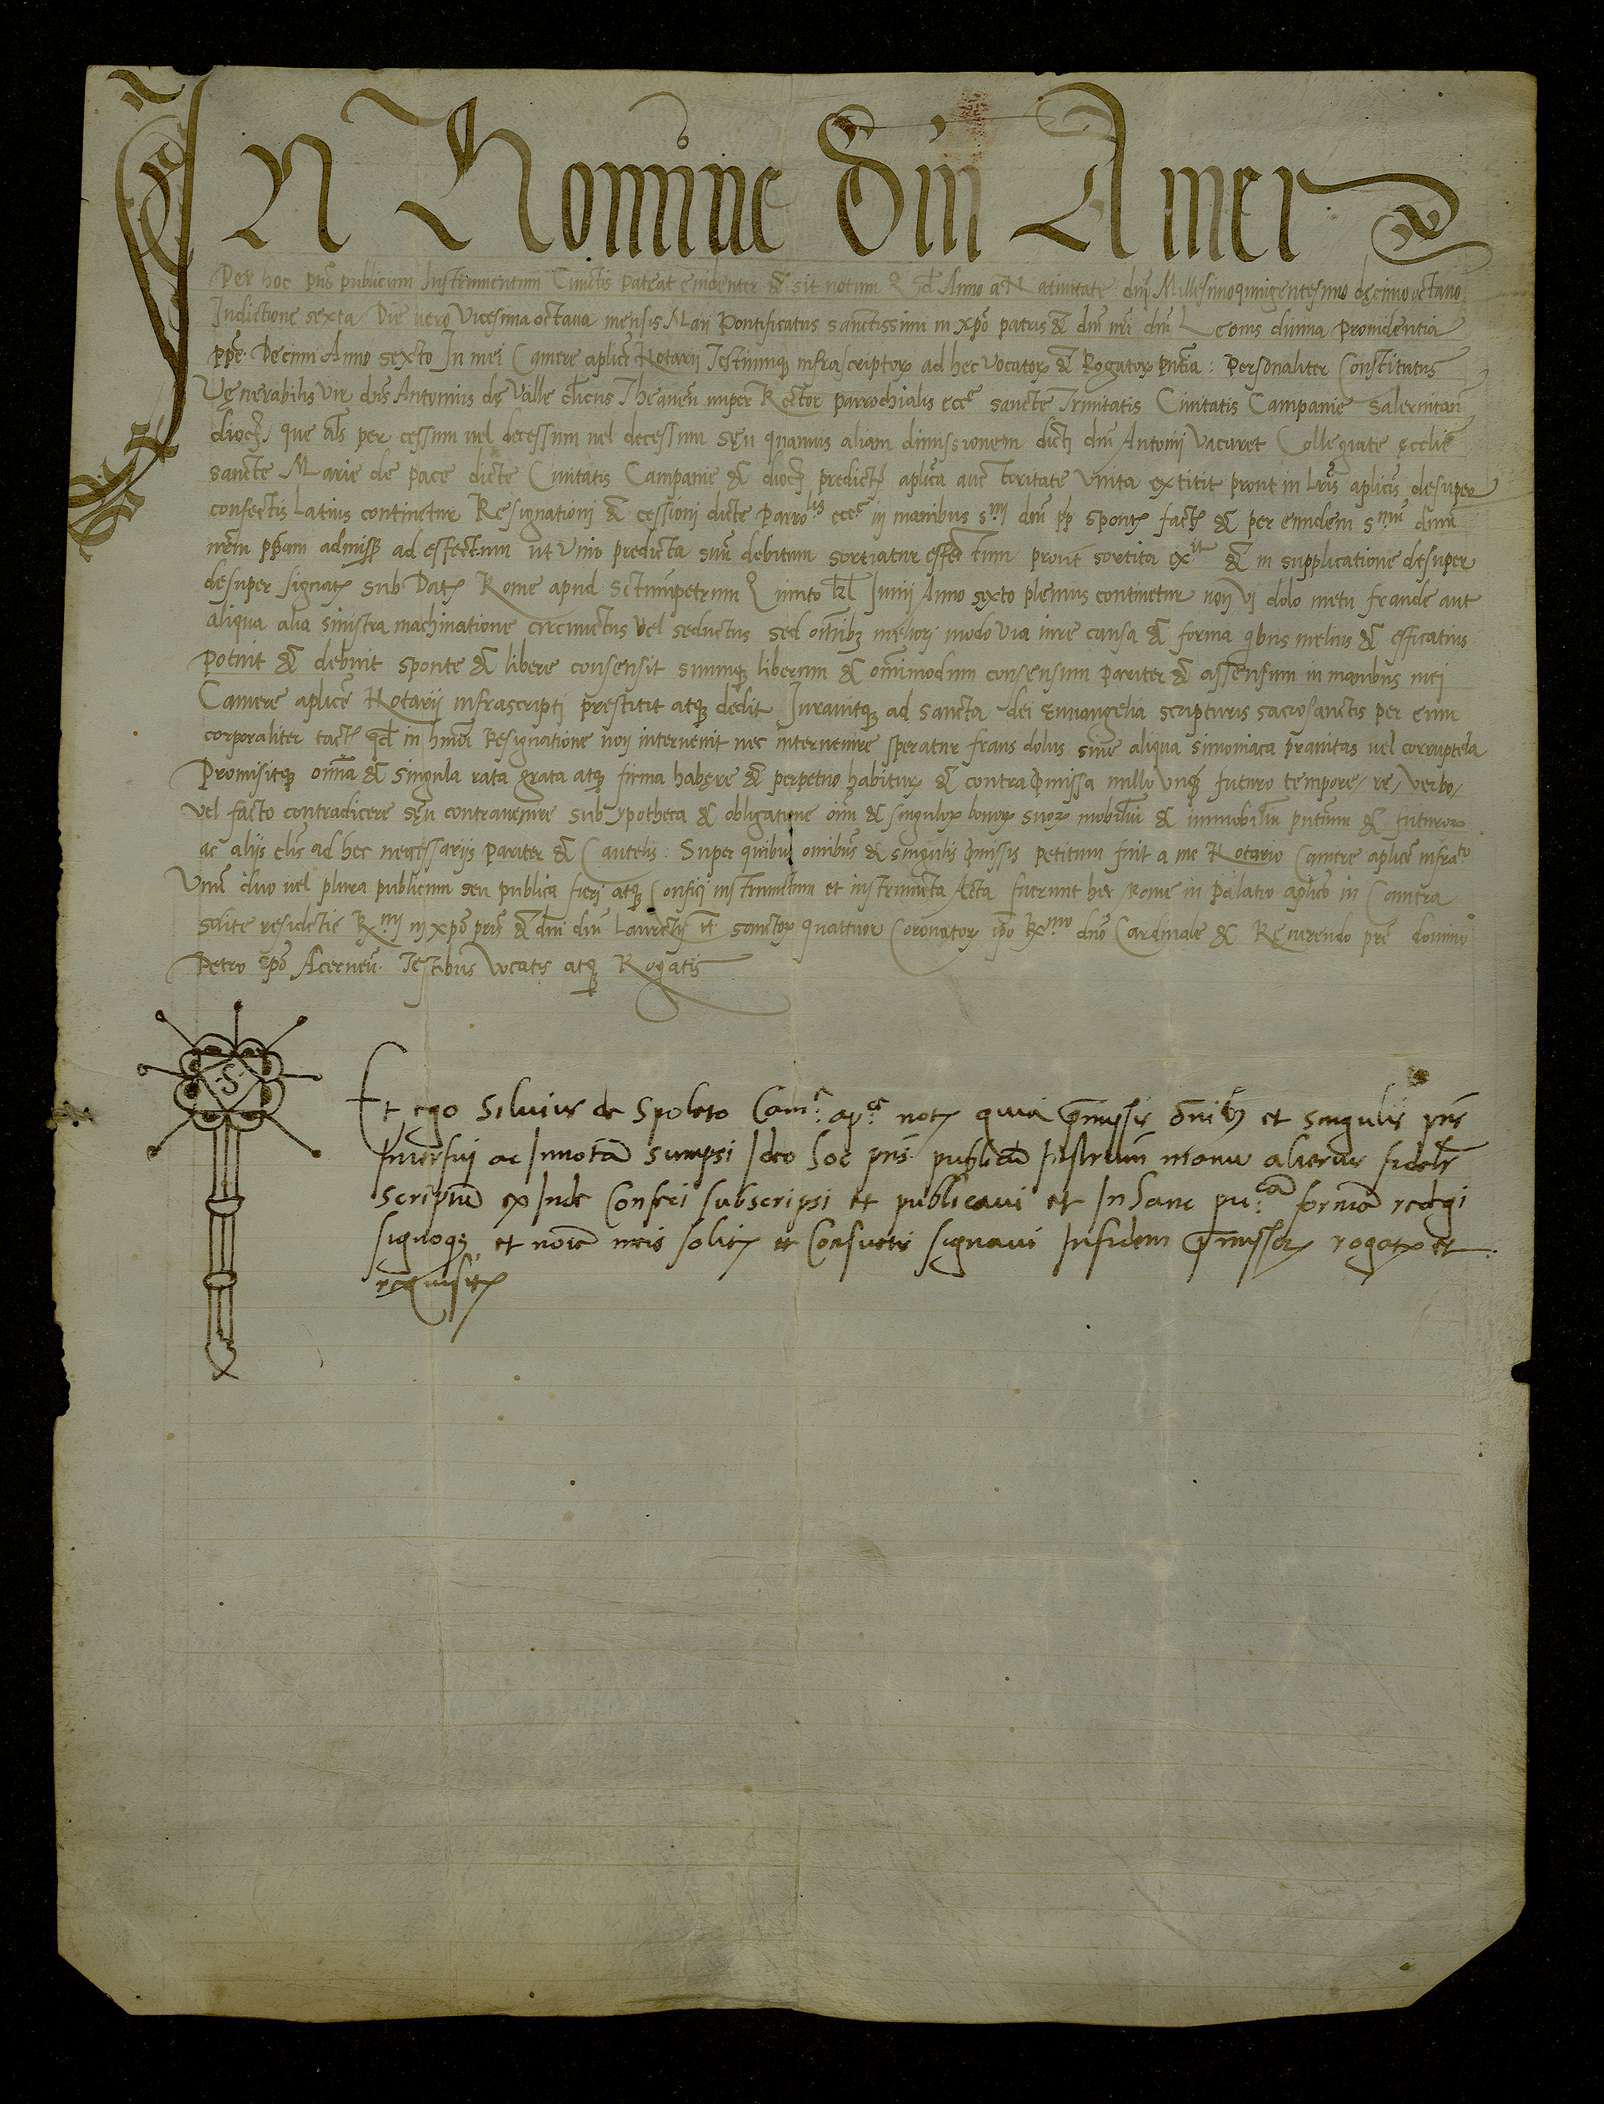 IN Nomine Dñi Amen
Per hoc pñs publicum Instrumentum Cunctis pateat euidenter & sit notum Anno a Natiuitate dñj Millesimoquingentesimo decimo octauo
Indictione sexta Die uero Vicesima octaua mensis Maij Pontificatus sanctissimi in xp̃o patris & dñi nr̃i dñi Leonis diuina prouidentia
pp̃e Decimi Anno sexto In mei Camere aplicẽ Notarij Testiumqꝫ infrascriptoꝝ ad hec vocatoꝝ & Rogatoꝝ pñtia: personaliter Constitutus
Venerabilis Vir dñs Antonius de Valle cl̃icus Theaneñ nuper Rector parrochialis ecc̃ sancte Trinitatis Ciuitatis Campanie Salernitañ
dioc̃ que al̃s per cessum uel decessum uel decessum seu quamuis aliam dimissionem dicti dñi Antonij Vacaret Collegiate ecclie
sancte Marie de pace dicte Ciuitatis Campanie & dioc̃ predictꝭ aplica auctoritate Vnita extitit prout in lr̃is aplicis desuper
confectis latius continetur Resignationj & cessionj dicte parrolis ecc̃ in manibus s.mi dñi pp̃ spontꝭ factꝭ & per eundem s.mum dñum
nr̃m pp̃am admissꝭ ad effectum ut Vnio predicta suũ debitum sortiatur effectum prout sortita exit & in supplicatione desuper
desuper signatꝭ sub Datꝭ Rome apud Sctumpetrum Quinto kl̃ Iunij Anno sexto plenius continetur non vj dolo metu fraude aut
aliqua alia sinistra machinatione circunuctus vel seductus sed omĩbꝫ meliorj modo via iure causa & forma qbus melius & efficatius
potuit & debuit sponte & libere consensit suumqꝫ liberum & omnimodum consensum pariter & assensum in manibus mei
Camere aplicẽ Notarij infrascriptj prestitit atqꝫ dedit Iurauitqꝫ ad sancta dei Euuangelia scripturis sacrosanctis per eum
corporaliter tactꝭ qd̃ in hmõi Resignatione non interuenit nec interuenire speratur fraus dolus siue aliqua simoniaca prauitas uel corruptela
Promisitqꝫ omĩa & singula rata grata atqꝫ firma habere & perpetuo habituꝝ & contra p̃missa nullo vnqꝫ futuro tempore / re / verbo /
vel facto contradicere seu contrauenire sub ypotheca & obligatione oĩm & singuloꝝ bonoꝝ suoꝝ mobiliũ & immobiliũ pñtium & futuroꝝ
ac alijs cl̃is ad hec necessarijs pariter & Cautelis: Super quibus omibus & singulis p̃missis petitum fuit a me Notario Camere aplicẽ infrato
Vnũ duo uel plura publicum seu publica fierj atqꝫ Conficj instrumẽtum et instrumẽta Acta fuerunt hec Rome in palatio aplico in Camera
solite residẽtie R.mi in xp̃o pris & dñi dñi Laurẽtij tt. sanctoꝝ quattuor Coronatoꝝ ip̃o R.mo dño Cardinale & Reuerendo pre domino
Petro epõ Acerneñ. Testibus vocatis atqꝫ Rogatis
S
Et ego Siluius de Spoleto Cam.e ap.ce notꝭ quia p̃missis omĩbꝫ et singulis pñs
Interfuj ac In notã sumpsi Ideo hoc pñs publicũ Instrum̃ manu alterius fidelr̃
scriptũ ex Inde Confeci subscripsi et publicaui et In hanc pu.cã formã redegi
signoqꝫ et noĩe meis solitꝭ et Consuetis signaui In fidem p̃missoꝝ rogatꝭ et
requisitꝭ